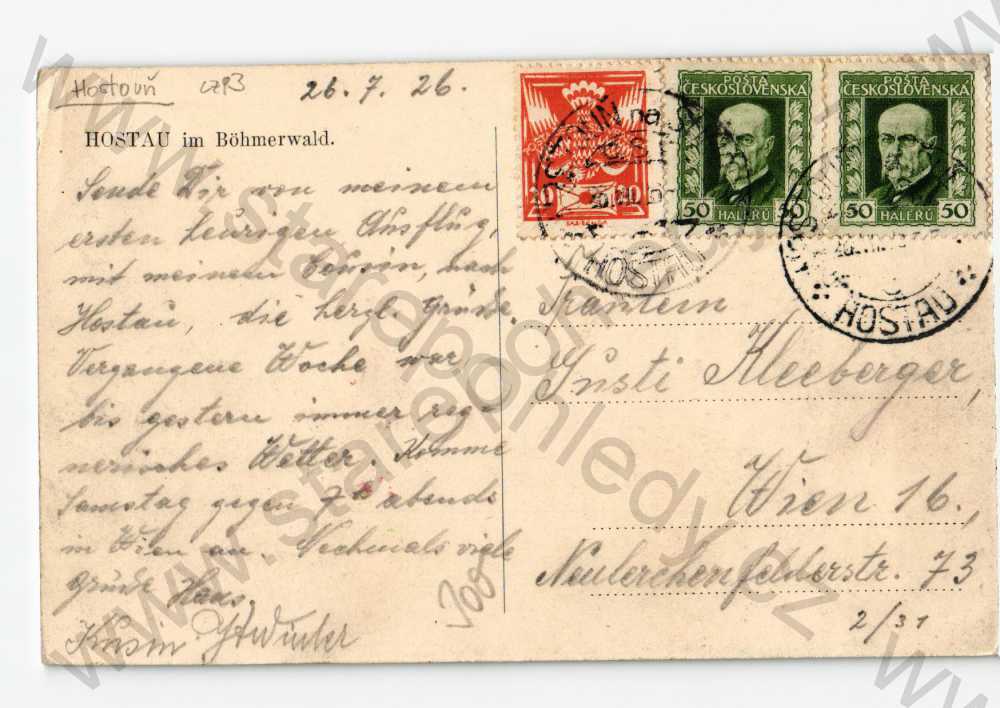 Hostouň
26. 7. 26.
HOSTAU im Böhmerwald.
Sende Dir von meinem
ersten heurigen Ausflug,
mit meinem Cousin, nach
Hostau, die herzl. Grüße.
Vergangene Woche war
bis gestern immer reg-
nerisches Wetter. Komme
Samstag gegen 7h abends
in Wien an. Nochmals viele
Grüße Hans
Kusin
20 20
POŠTA
ČESKOSLOVENSKA
50 HALÉŘŮ 50
POŠTA
ČESKOSLOVENSKA
50 HALÉŘŮ 50
HOSTAU
HOSTAU
Fräulein
Justi Kleeberger,
Wien 16.,
Neulerchenfelderstr. 73
2/31
www.starepohlednice.cz
www.starepohledy.cz